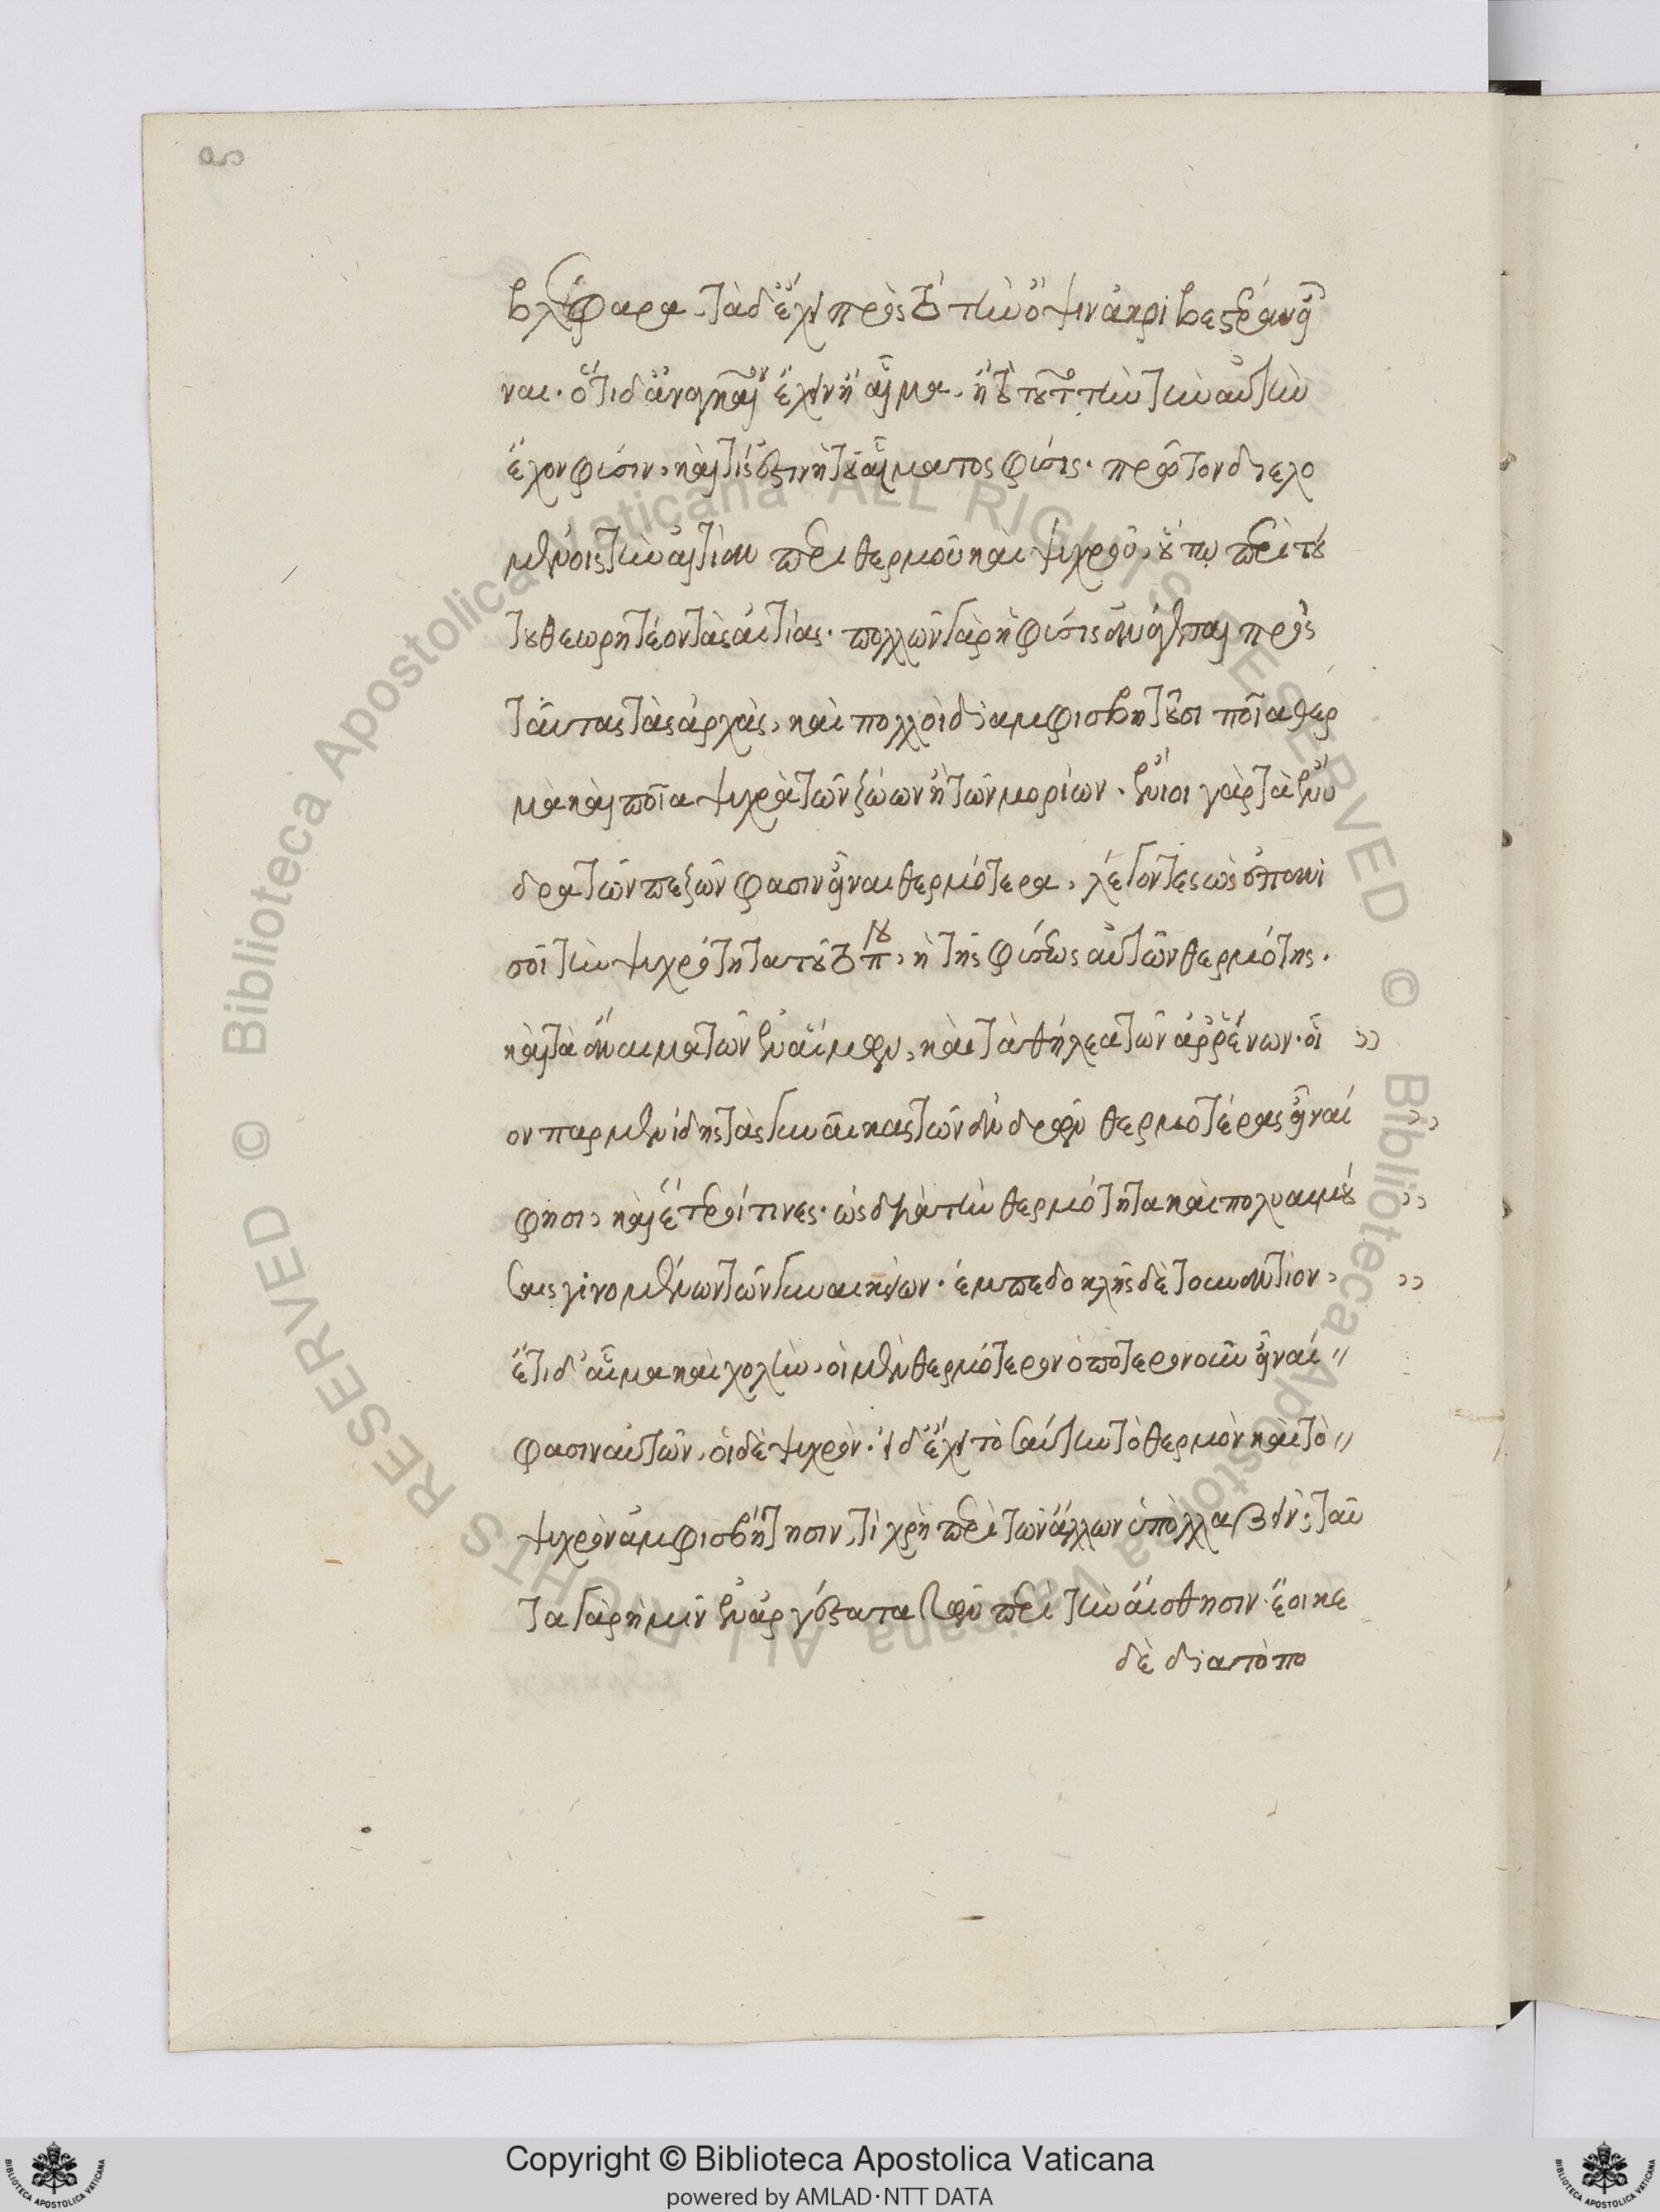 βλέφαρα. τὰ δ' ἔχει πρὸς τὸ τὴν ὄψιν ἀκριβεστέραν εἶ
ναι. ὅτι δ' ἀναγκαῖον ἔχειν ἢ αἷμα, ἢ τὸ τούτω τὴν τὴν αὐτὴν
ἔχον φύσιν, καὶ τίς ἐστιν ἡ τοῦ αἵματος φύσις. πρῶτον διελο
μένοις τὴν αἰτίαν περὶ θερμοῦ καὶ ψυχροῦ, οὕτω περὶ τού
του θεωρητέον τὰς αἰτίας. πολλῶν γὰρ ἡ φύσις ἀνάγεται πρὸς
ταύτας τὰς ἀρχὰς, καὶ πολλοὶ διαμφισβητοῦσι ποῖα θερ
μὰ καὶ ποῖα ψυχρὰ τῶν ζώων ἢ τῶν μορίων. ἔνιοι γὰρ τὰ ἔνυ
δρα τῶν πεζῶν φασιν εἶναι θερμότερα, λέγοντες ὡς ἐπανι
σοῖ τὴν ψυχρότητα τοῦ τόπου, ἡ τῆς φύσεως αὐτῶν θερμότης.
καὶ τὰ ἄναιμα τῶν ἐναίμων, καὶ τὰ θήλεα τῶν ἀῤῥένων. οἷ "
ον παρμενίδης τὰς γυναῖκας τῶν ἀνδρῶν θερμοτέρας εἶναί "
φησι, καὶ ἕτεροί τινες. ὡς διὰ τὴν θερμότητα καὶ πολυαιμού "
σαις γινομένων τῶν γυναικείων. ἐμπεδοκλῆς δὲ τοὐναντίον, "
ἔτι δ' αἷμα καὶ χολὴν, οἱ μὲν θερμότερον ὁπότερον οὖν εἶναί "
φασιν αὐτῶν, οἱ δὲ ψυχρόν. εἰ δ' ἔχει τοσαύτην τὸ θερμὸν καὶ τὸ "
ψυχρὸν ἀμφισβήτησιν, τί χρὴ περὶ τῶν ἄλλων ὑπολλαβεῖν; ταῦ
τα γὰρ ἡμῖν ἐναργέστατα τῶν περὶ τὴν αἴσθησιν. ἔοικε
δὲ διὰ τὸ πο